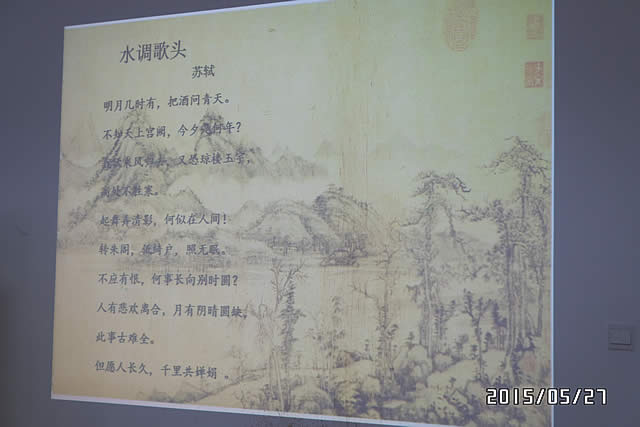 水调歌头
苏轼
明月几时有，把酒问青天。
不知天上宫阙，今夕是何年？
我欲乘风归去，又恐琼楼玉宇，
高处不胜寒。
起舞弄清影，何似在人间！
转朱阁，低绮户，照无眠。
不应有恨，何事长向别时圆？
人有悲欢离合，月有阴晴圆缺，
此事古难全。
但愿人长久，千里共婵娟 。
2015/05/27